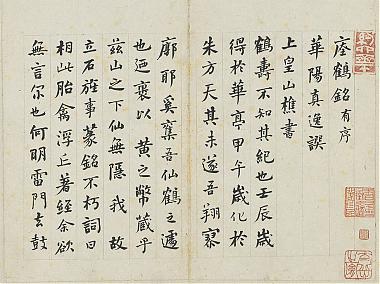 瘞鶴銘有序
華陽真逸譔
上皇山樵書
鶴壽不知其紀也壬辰歲
得於華亭甲午歲化於
朱方天其未遂吾翔寥
廓耶奚奪吾仙鶴之遽
也迺裹以黄之幣藏乎
茲山之下仙無隱我故
立石旌事篆銘不朽詞曰
相此胎禽浮丘著經余欲
無言尔也何明雷門去鼓